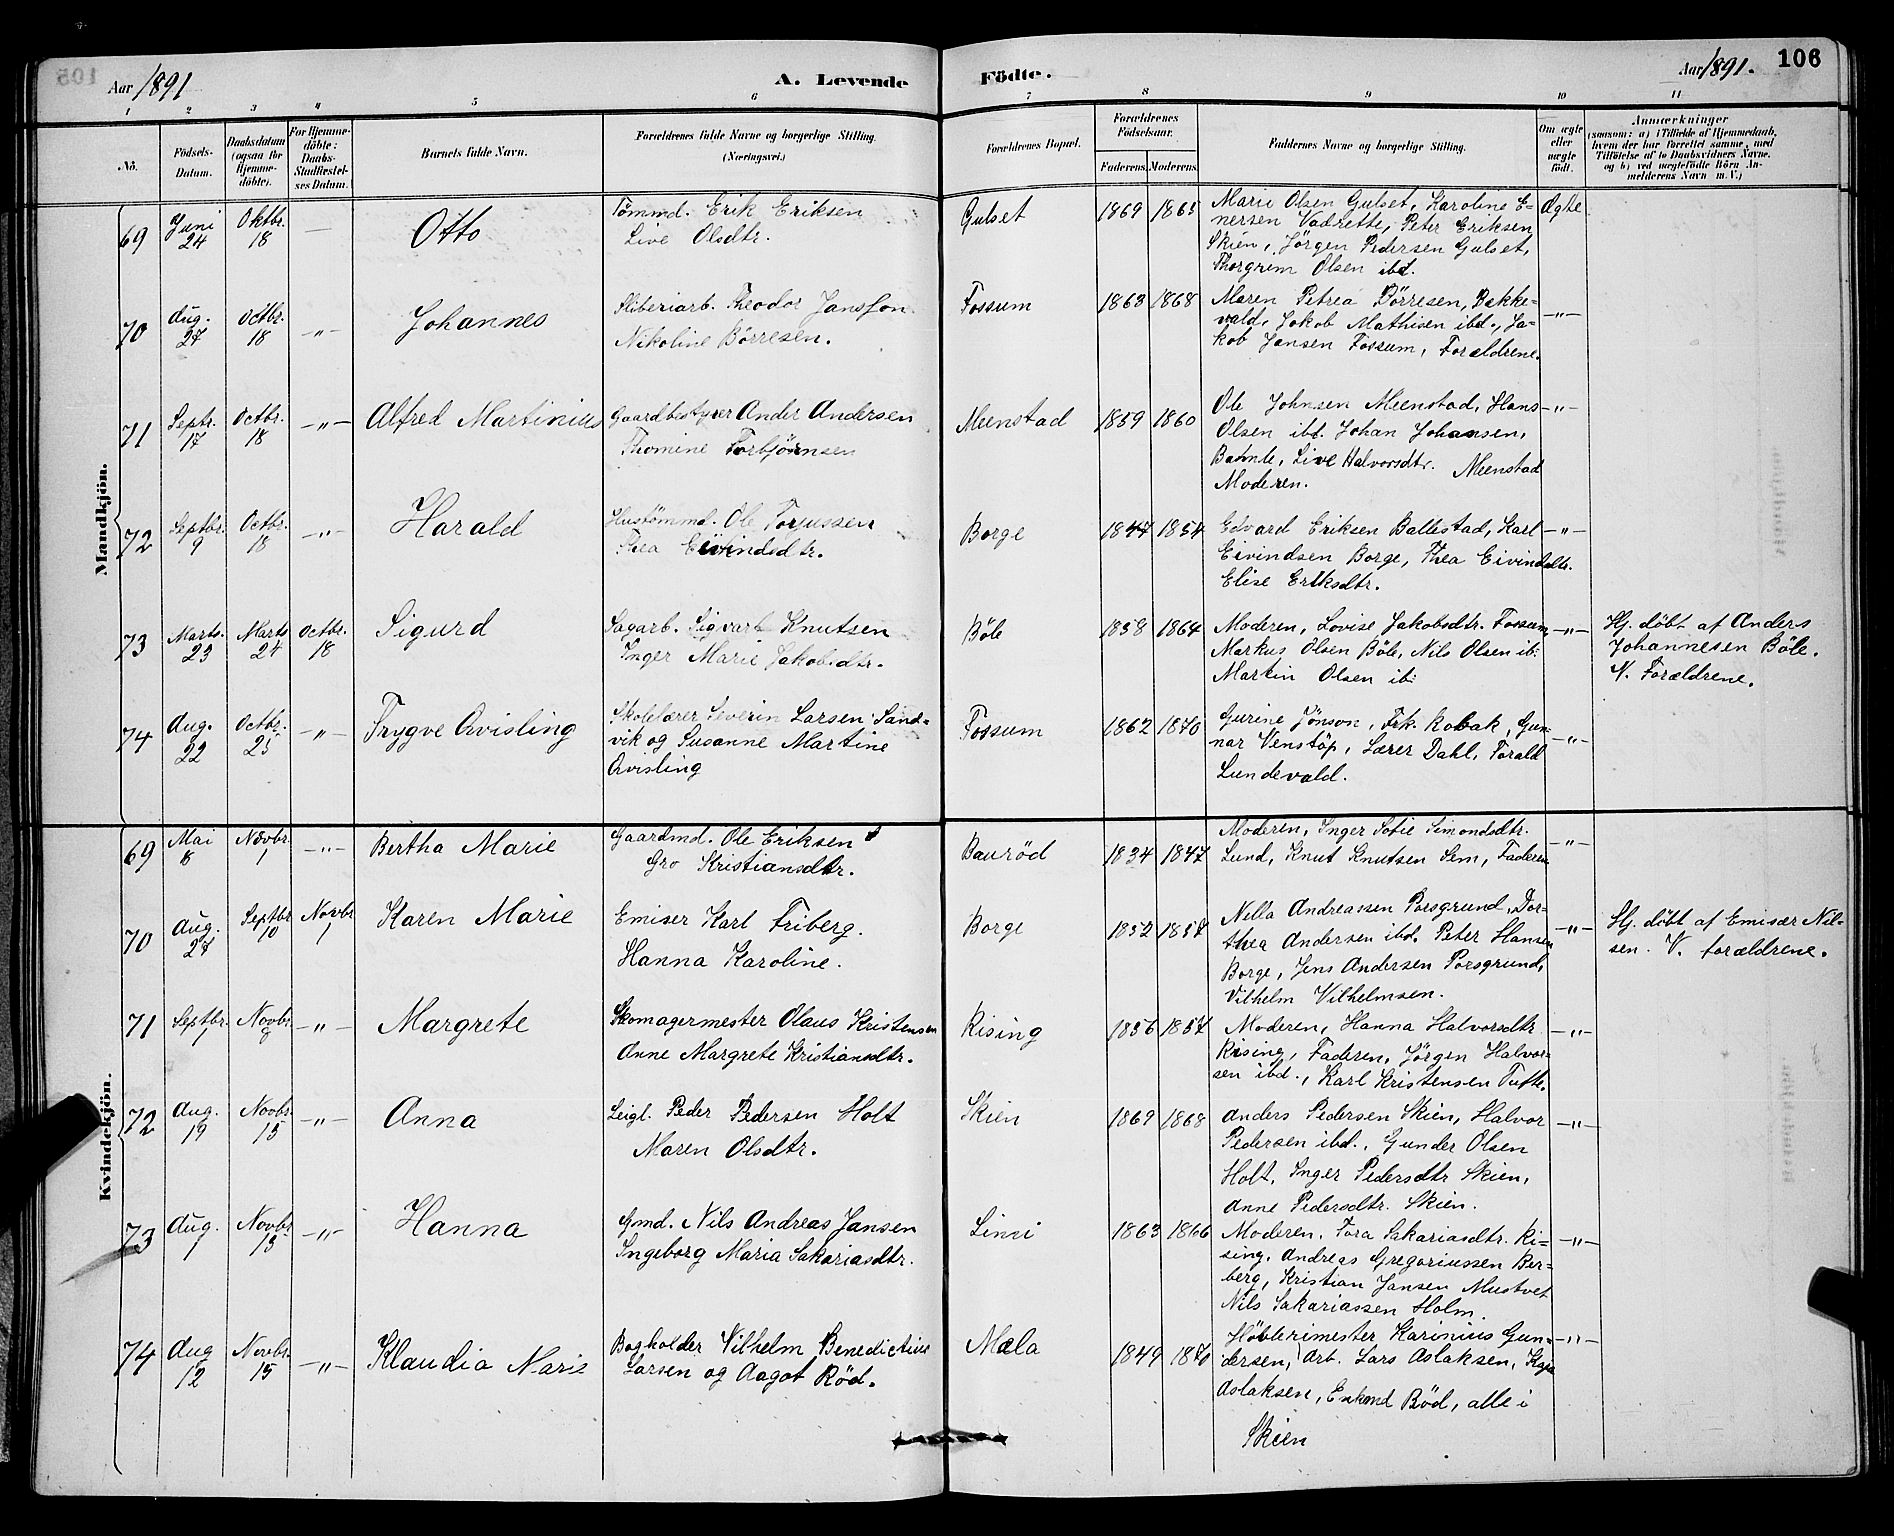 105
Aar 1891
A. Levende
Födte.
Aar 1891.
106
1 2 3 4 5 6 7 8 9 10 11
No.
Födsels-
Datum.
Daabsdatum
(ogsaa for
Hjemme-
döbte).
For Hjemme-
döbte:
Daabs-
Stadfæstel-
ses Datum.
Barnets fulde Navn.
Forældrenes fulde Navne og borgerlige Stilling.
(Næringsvei.)
Forældrenes Bopæl.
Forældrenes
Födselsaar.
Faderens. Moderens.
Faddernes Navne og borgerlige Stilling.
Om ægte
eller
uægte
födt.
Anmærkninger
(saasom: a) i Tilfælde af Hjemmedaab,
hvem der har forrettet samme, med
Tilföielse af to Daabsvidners Navne,
og b) ved uægtefödte Börn An-
melderens Navn m. V.)
Mandkjön.
69 Juni 24 Oktbr. 18 — Otto
Tömmd. Erik Eriksen
Live Olsdtr.
Gulset 1869 1865
Marie Olsen Gulset, Karoline E-
nersen Vadrette, Peter Eriksen
Skien, Jörgen Pedersen Gulset,
Thorgrim Olsen ibd.
Ægte
70 Aug. 27 Octbr. 18 -„- Johannes
Sliberiarb. Theodor Jansson
Nikoline Börresen.
Fossum 1863 1868
Maren Petrea Börresen, Bakke-
vald, Jakob Mathisen ibd., Ja-
kob Jansen Fossum, Forældrene.
-„-
71 Septr. 17 Octbr. 18 -„- Alfred Martinius
Gaardbestyrer Ander Andersen
Thomine Torbjörnsen
Meenstad 1859 1860
Ole Johnsen Meenstad, Hans
Olsen ibd. Johan Johansen,
Bamle, Live Halvorsdtr. Meenstad
Moderen.
-„-
72 Septbr. 9 Octbr. 18 -„- Harald
Hustömmd. Ole Toriussen
Thea Eivindsdtr.
Borge 1847 1854
Edvard Eriksen Ballestad, Karl
Eivindsen Borge, Thea Eivindsdtr.
Elise Eriksdtr.
-„-
73 Marts. 23 Marts 24 Octbr. 18 Sigurd
Sagarb. Sigvart Knutsen
Inger Marie Jakobsdtr.
Böle 1858 1864
Moderen, Lovise Jakobsdtr. Fossum,
Markus Olsen Böle, Nils Olsen ib:
Martin Olsen ib:
-„-
Hj. döbt af Anders
Johannesen Böle.
V. Forældrene.
74 Aug. 22 Octbr. 25 -„- Trygve Qvisling
Skolelærer Severin Larsen Sand-
vik og Susanne Martine
Qvisling
Fossum 1862 1870
Gurine Jönson, Frk. Kobak, Gun-
nar Venstöp, Lærer Dahl, Torald
Lundevald.
-„-
Kvindekjön.
69 Mai 8 Novbr. 1 -„- Bertha Marie
Gaardmd. Ole Eriksen &
Gro Kristiansdtr.
Bauröd 1834 1847
Moderen, Inger Sofie Simondsdtr.
Lund, Knut Knutsen Sem, Faderen
-„-
70 Aug. 27 Septbr. 10 Novbr. 1 Karen Marie
Emiser Karl Friberg.
Hanna Karoline.
Borge 1852 1857
Nella Andreassen Porsgrund, Dor-
thea Andersen ibd. Peter Hansen
Borge, Jens Andersen Porsgrund,
Vilhelm Vilhelmsen.
-„-
Hj. döbt af Emisær Nil-
sen. V. forældrene.
71 Septbr. 1 Novbr. 8 -„- Margrete
Skomagermester Olaus Kristensen
Anne Margrete Kristiansdtr.
Rising 1856 1857
Moderen, Hanna Halvorsdtr
Rising, Faderen, Jörgen Halvor-
sen ibd., Karl Kristensen Tufte.
-„-
72 Aug. 19 Novbr. 15 -„- Anna
Leigl. Peder Pedersen Holt
Maren Olsdtr.
Skien 1869 1868
Anders Pedersen Skien, Halvor
Pedersen ibd., Gunder Olsen
Holt, Inger Pedersdtr Skien,
Anne Pedersdtr. Skien.
-„-
73 Aug. 1 Novbr. 15 -„- Hanna
Gmd. Nils Andreas Jansen
Ingeborg Maria Sakariasdtr.
Limi 1863 1866
Moderen, Tora Sakariasdtr. Ri-
sing, Andreas Gregoriussen Ber-
berg, Kristian Jansen Mustvet
Nils Sakariassen Holm.
-„-
74 Aug 12 Novbr. 15 -„- Klaudia Marie
Bogholder Vilhelm Benedictius
Larsen og Aagot Röd.
Mæla 1849 1870
Höblerimester Karinius Gun-
dersen, Arb. Lars Aslaksen, Kaja
Aslaksen, Enkemd Röd, alle i
Skien
-„-